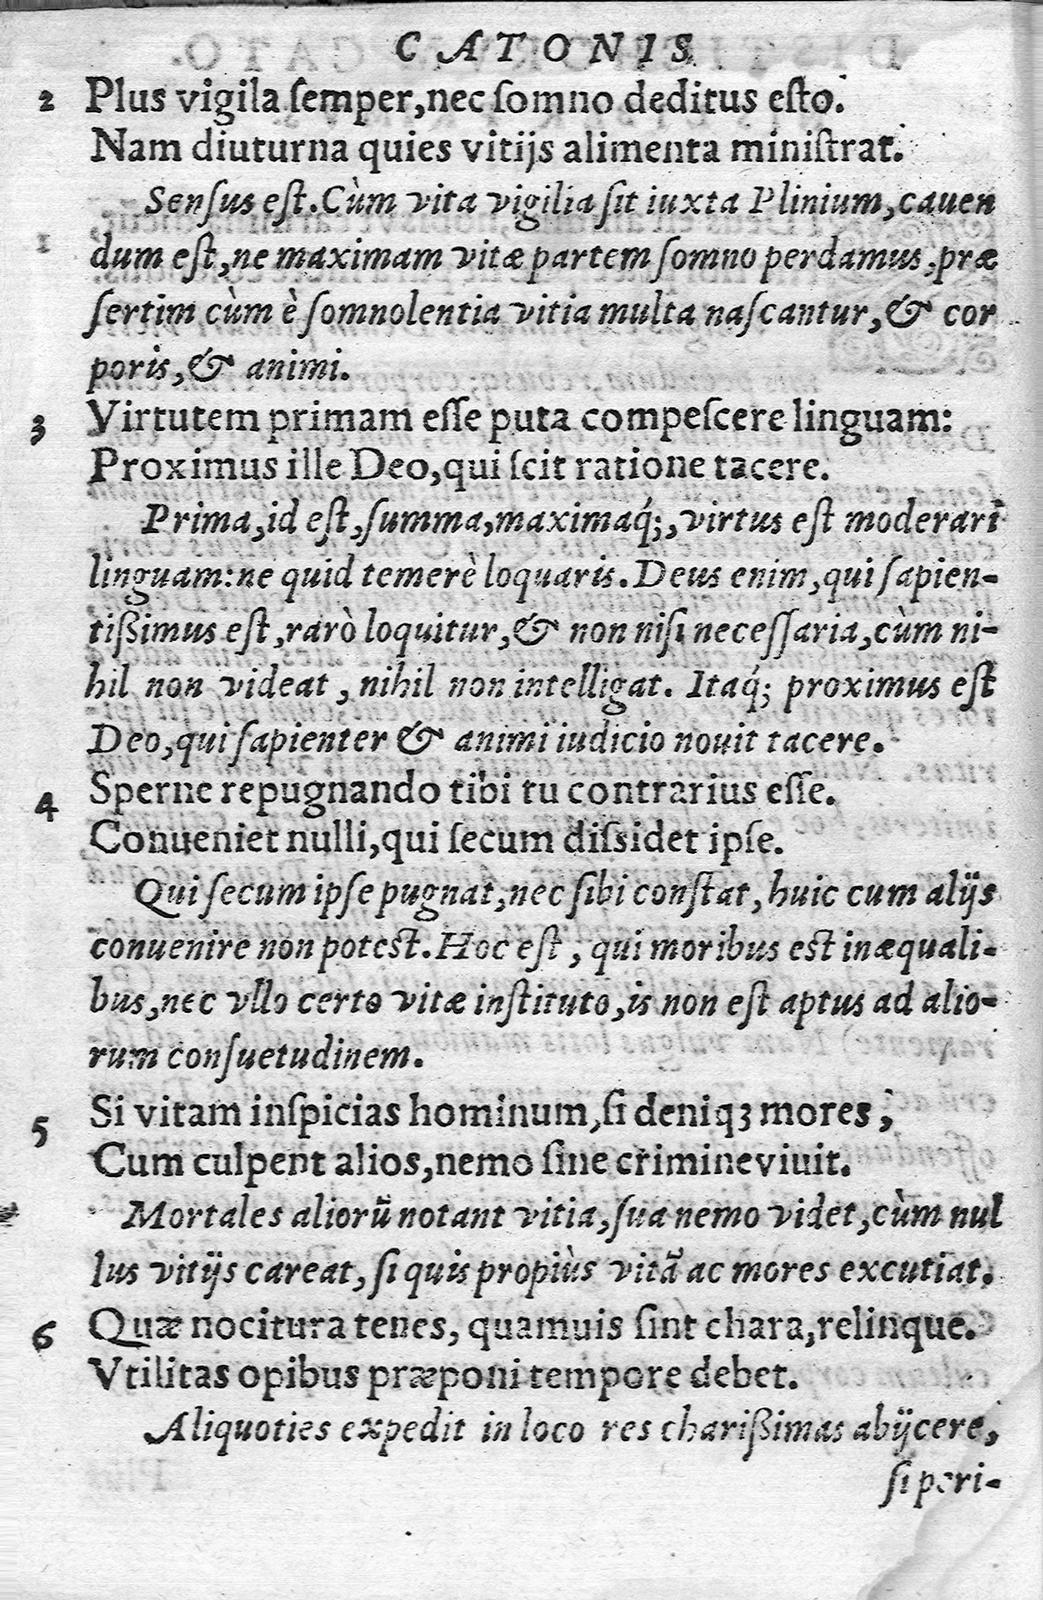 CATONIS
2 Plus vigila ſemper, nec ſomno deditus eſto.
Nam diuturna quies vitijs alimenta miniſtrat.
Senſus eſt. Cùm vita vigilia ſit iuxta Plinium, cauen
dum eſt, ne maximam vitæ partem ſomno perdamus, præ
ſertim cùm è ſomnolentia vitia multa naſcantur, & cor
poris, & animi.
3 Virtutem primam eſſe puta compeſcere linguam:
Proximus ille Deo, qui ſcit ratione tacere.
Prima, id eſt, ſumma, maximaq́;, virtus eſt moderari
linguam: ne quid temerè loquaris. Deus enim, qui ſapien-
tißimus eſt, rarò loquitur, & non niſi neceſſaria, cùm ni-
hil non videat, nihil non intelligat. Itaq́; proximus eſt
Deo, qui ſapienter & animi iudicio nouit tacere.
4 Sperne repugnando tibi tu contrarius eſſe.
Conueniet nulli, qui ſecum diſsidet ipſe.
Qui ſecum ipſe pugnat, nec ſibi conſtat, huic cum alijs
conuenire non poteſt. Hoc eſt, qui moribus eſt inæquali-
bus, nec vllo certo vitæ inſtituto, is non eſt aptus ad alio-
rum conſuetudinem.
5 Si vitam inſpicias hominum, ſi deniqꝫ mores,
Cum culpent alios, nemo ſine crimine viuit.
Mortales aliorũ notant vitia, ſua nemo videt, cùm nul
lus vitijs careat, ſi quis propiùs vitã ac mores excutiat.
6 Quæ nocitura tenes, quamuis ſint chara, relinque.
Vtilitas opibus præponi tempore debet.
Aliquoties expedit in loco res charißimas abijcere,
ſi peri-